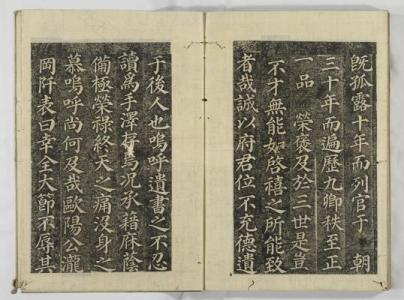 既孤露十年而列官于朝
三十年而遍歷九卿秩至正
一品榮褒及於三世是豈
不才無能如啓禧之所能致
者哉誠以府君位不充德遺
于後人也嗚呼遺書之不忍
讀爲手澤存焉況承藉庥蔭
備極榮祿終天之痛沒身之
慕嗚呼尚何及哉歐陽公瀧
岡阡表曰幸全大節不辱其